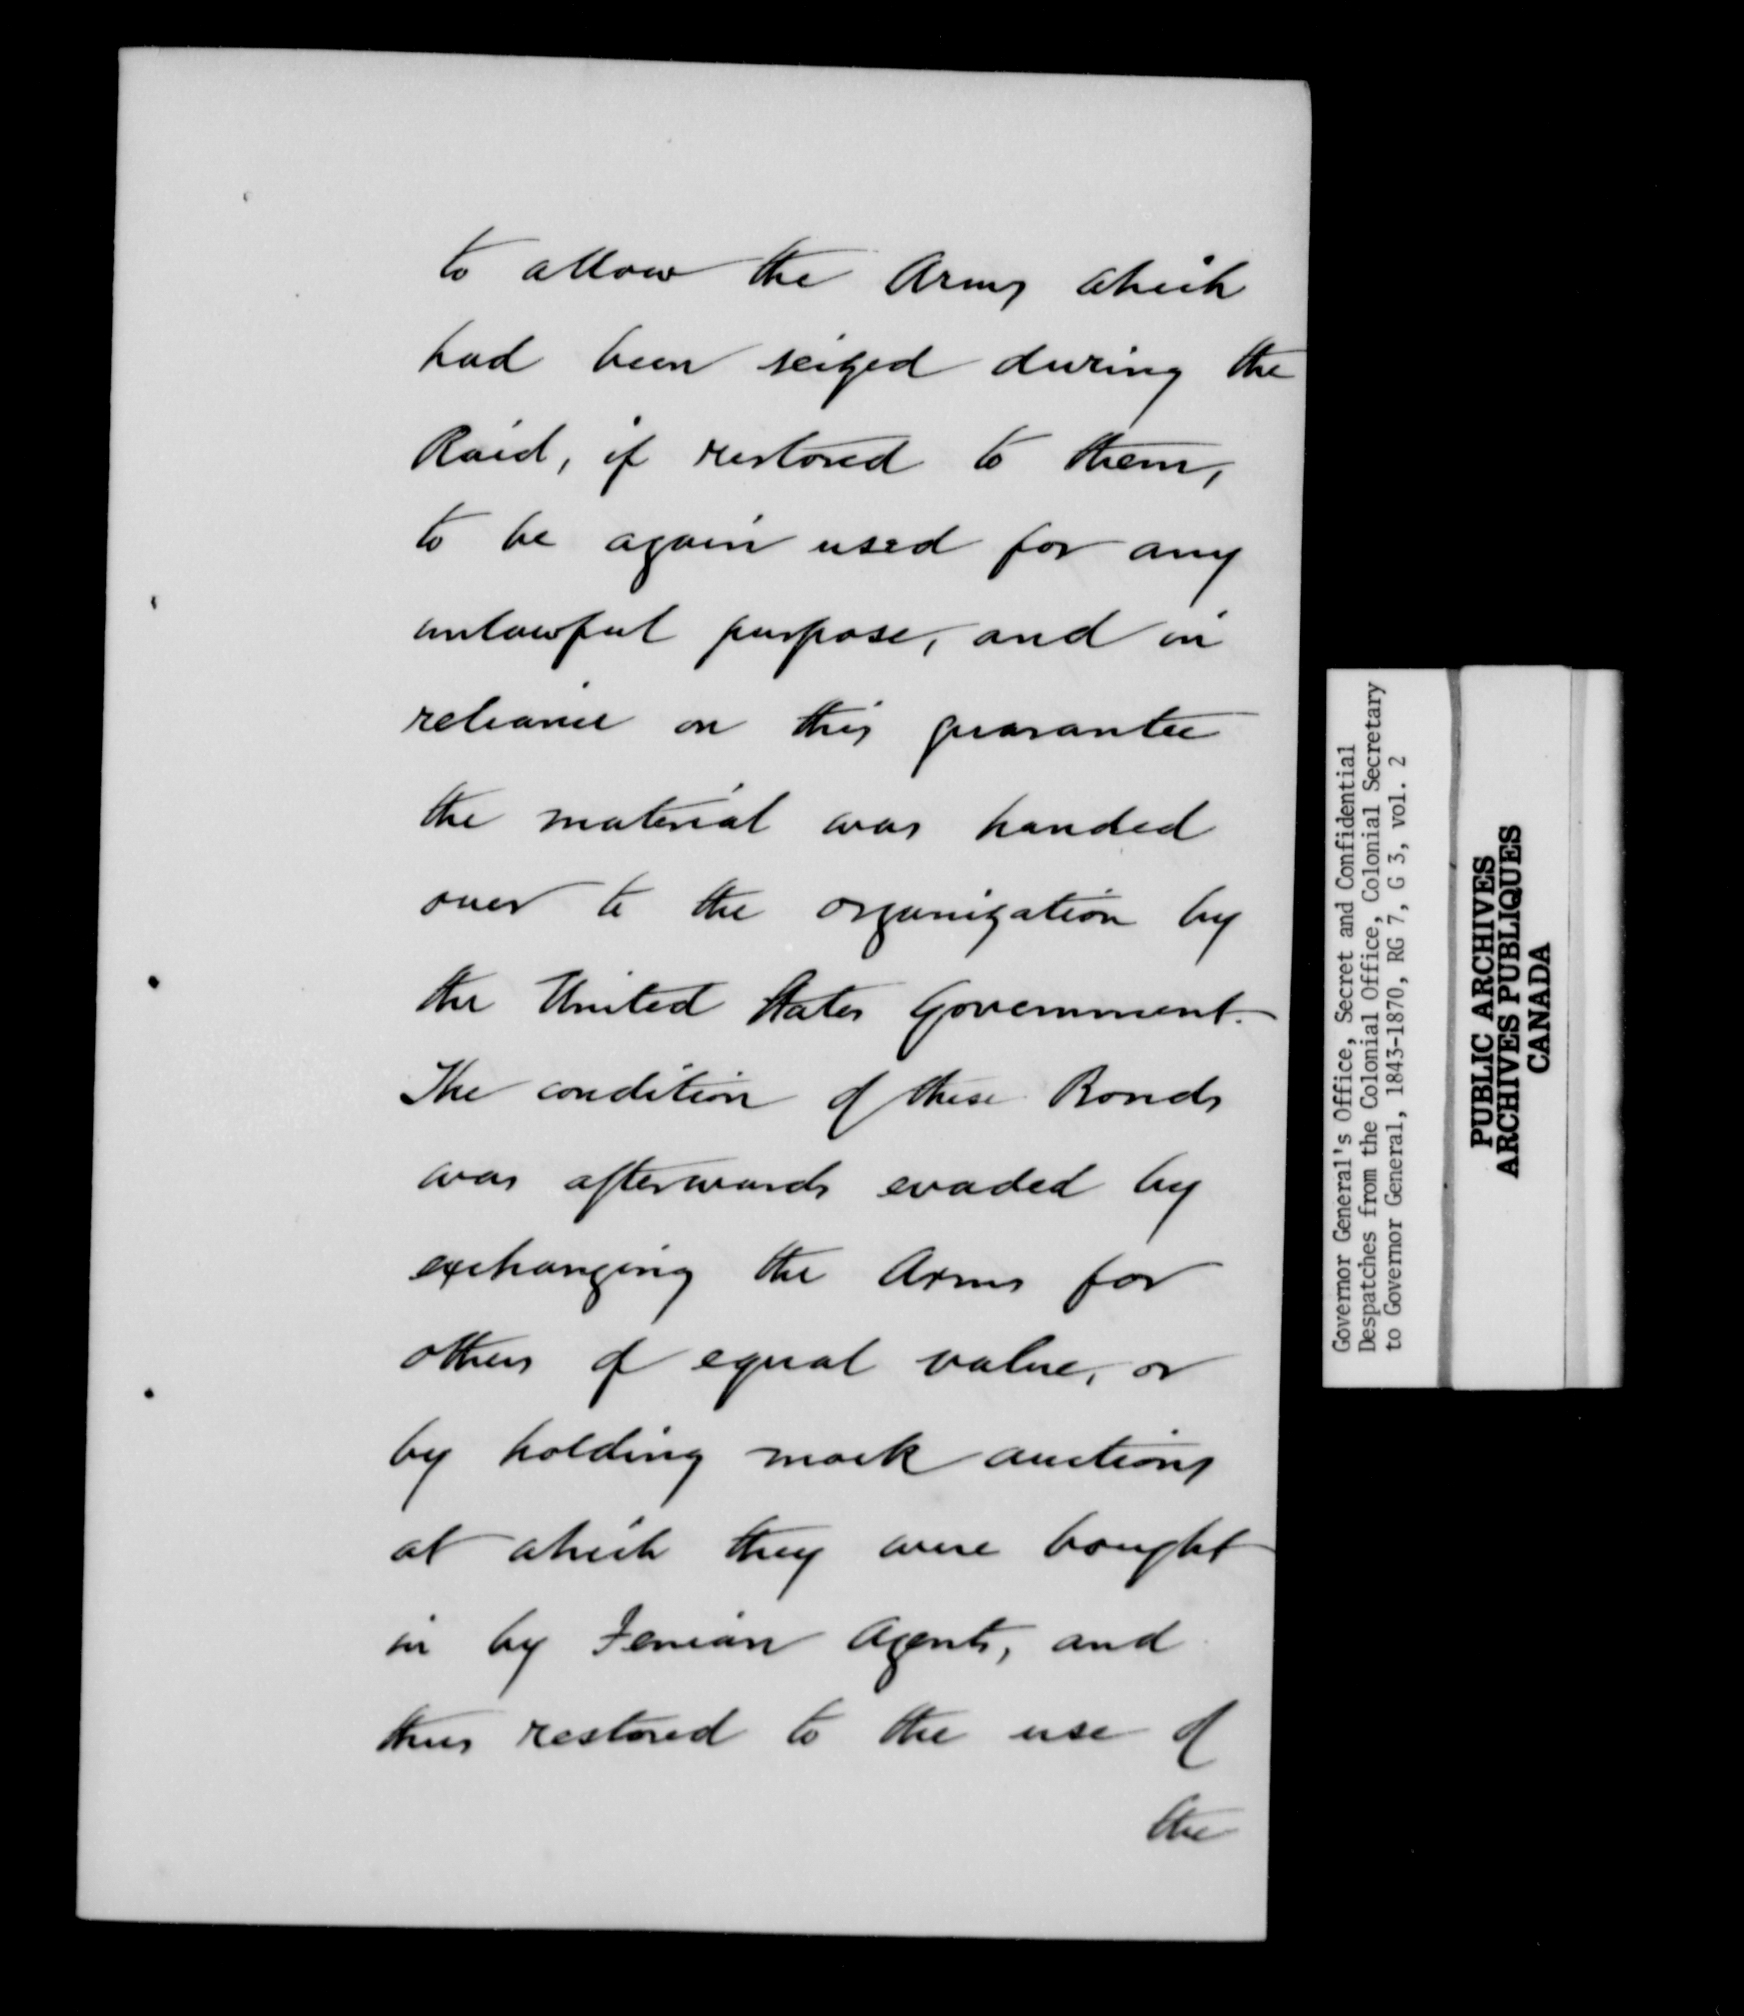 to allow the Arms which
had been seized during the
Raid, if restored to them,
to be again used for any
unlawful purpose, and in
reliance on this guarantee
the material was handed
over to the organization by
the United States Government.
The condition of these Bonds
was afterwards evaded by
exchanging the Arms for
others of equal value, or
by holding mock auctions
at which they were bought
in by Fenian Agents, and
thus restored to the use of
the
Governor General's Office, Secret and Confidential
Despatches from the Colonial Office, Colonial Secretary
to Governor General, 1843-1870, RG 7, G 3, vol. 2
PUBLIC ARCHIVES
ARCHIVES PUBLIQUES
CANADA